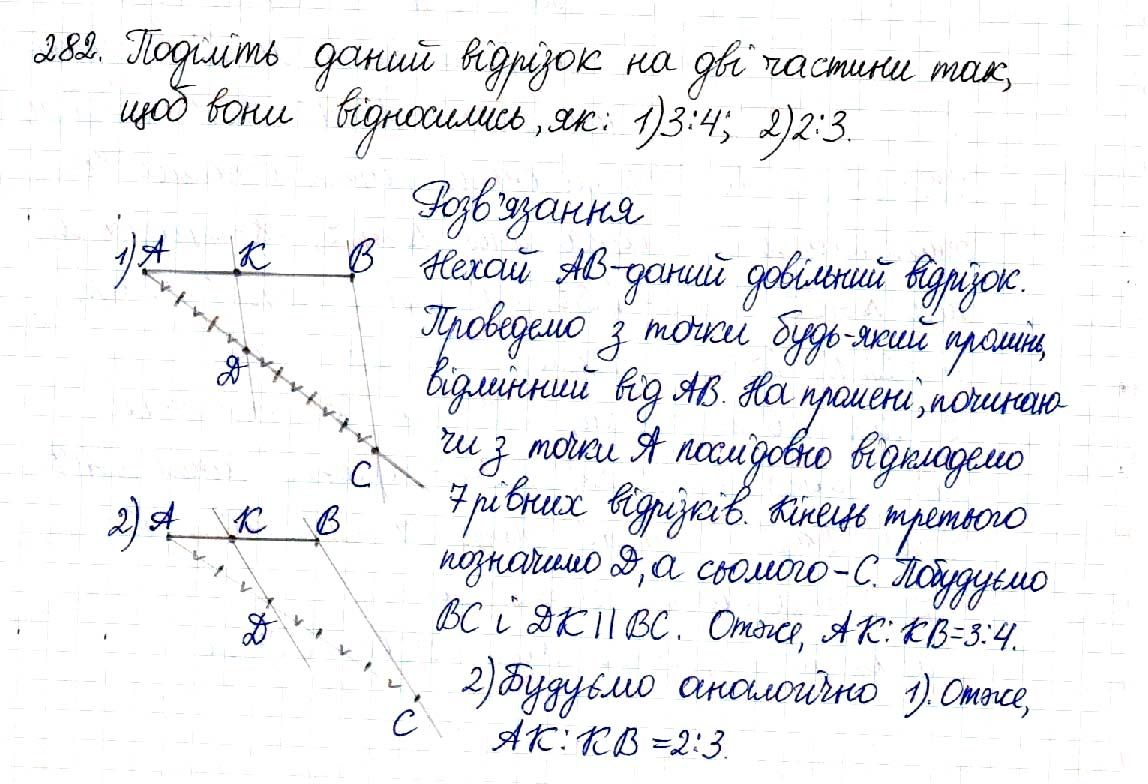 282. Поділіть даний відрізок на дві частини так,
щоб вони відносились, як: 1) 3:4; 2) 2:3.
Розв'язання
1) A K B
D
C
Нехай AB - даний довільний відрізок.
Проведемо з точки будь-який промінь,
відмінний від AB. На промені, починаю-
чи з точки A послідовно відкладемо
7 рівних відрізків. Кінець третього
позначимо D, а сьомого - C. Побудуємо
BC і DK || BC. Отже, AK : KB = 3:4.
2) A K B
D
C
2) Будуємо аналогічно 1). Отже,
AK : KB = 2:3.